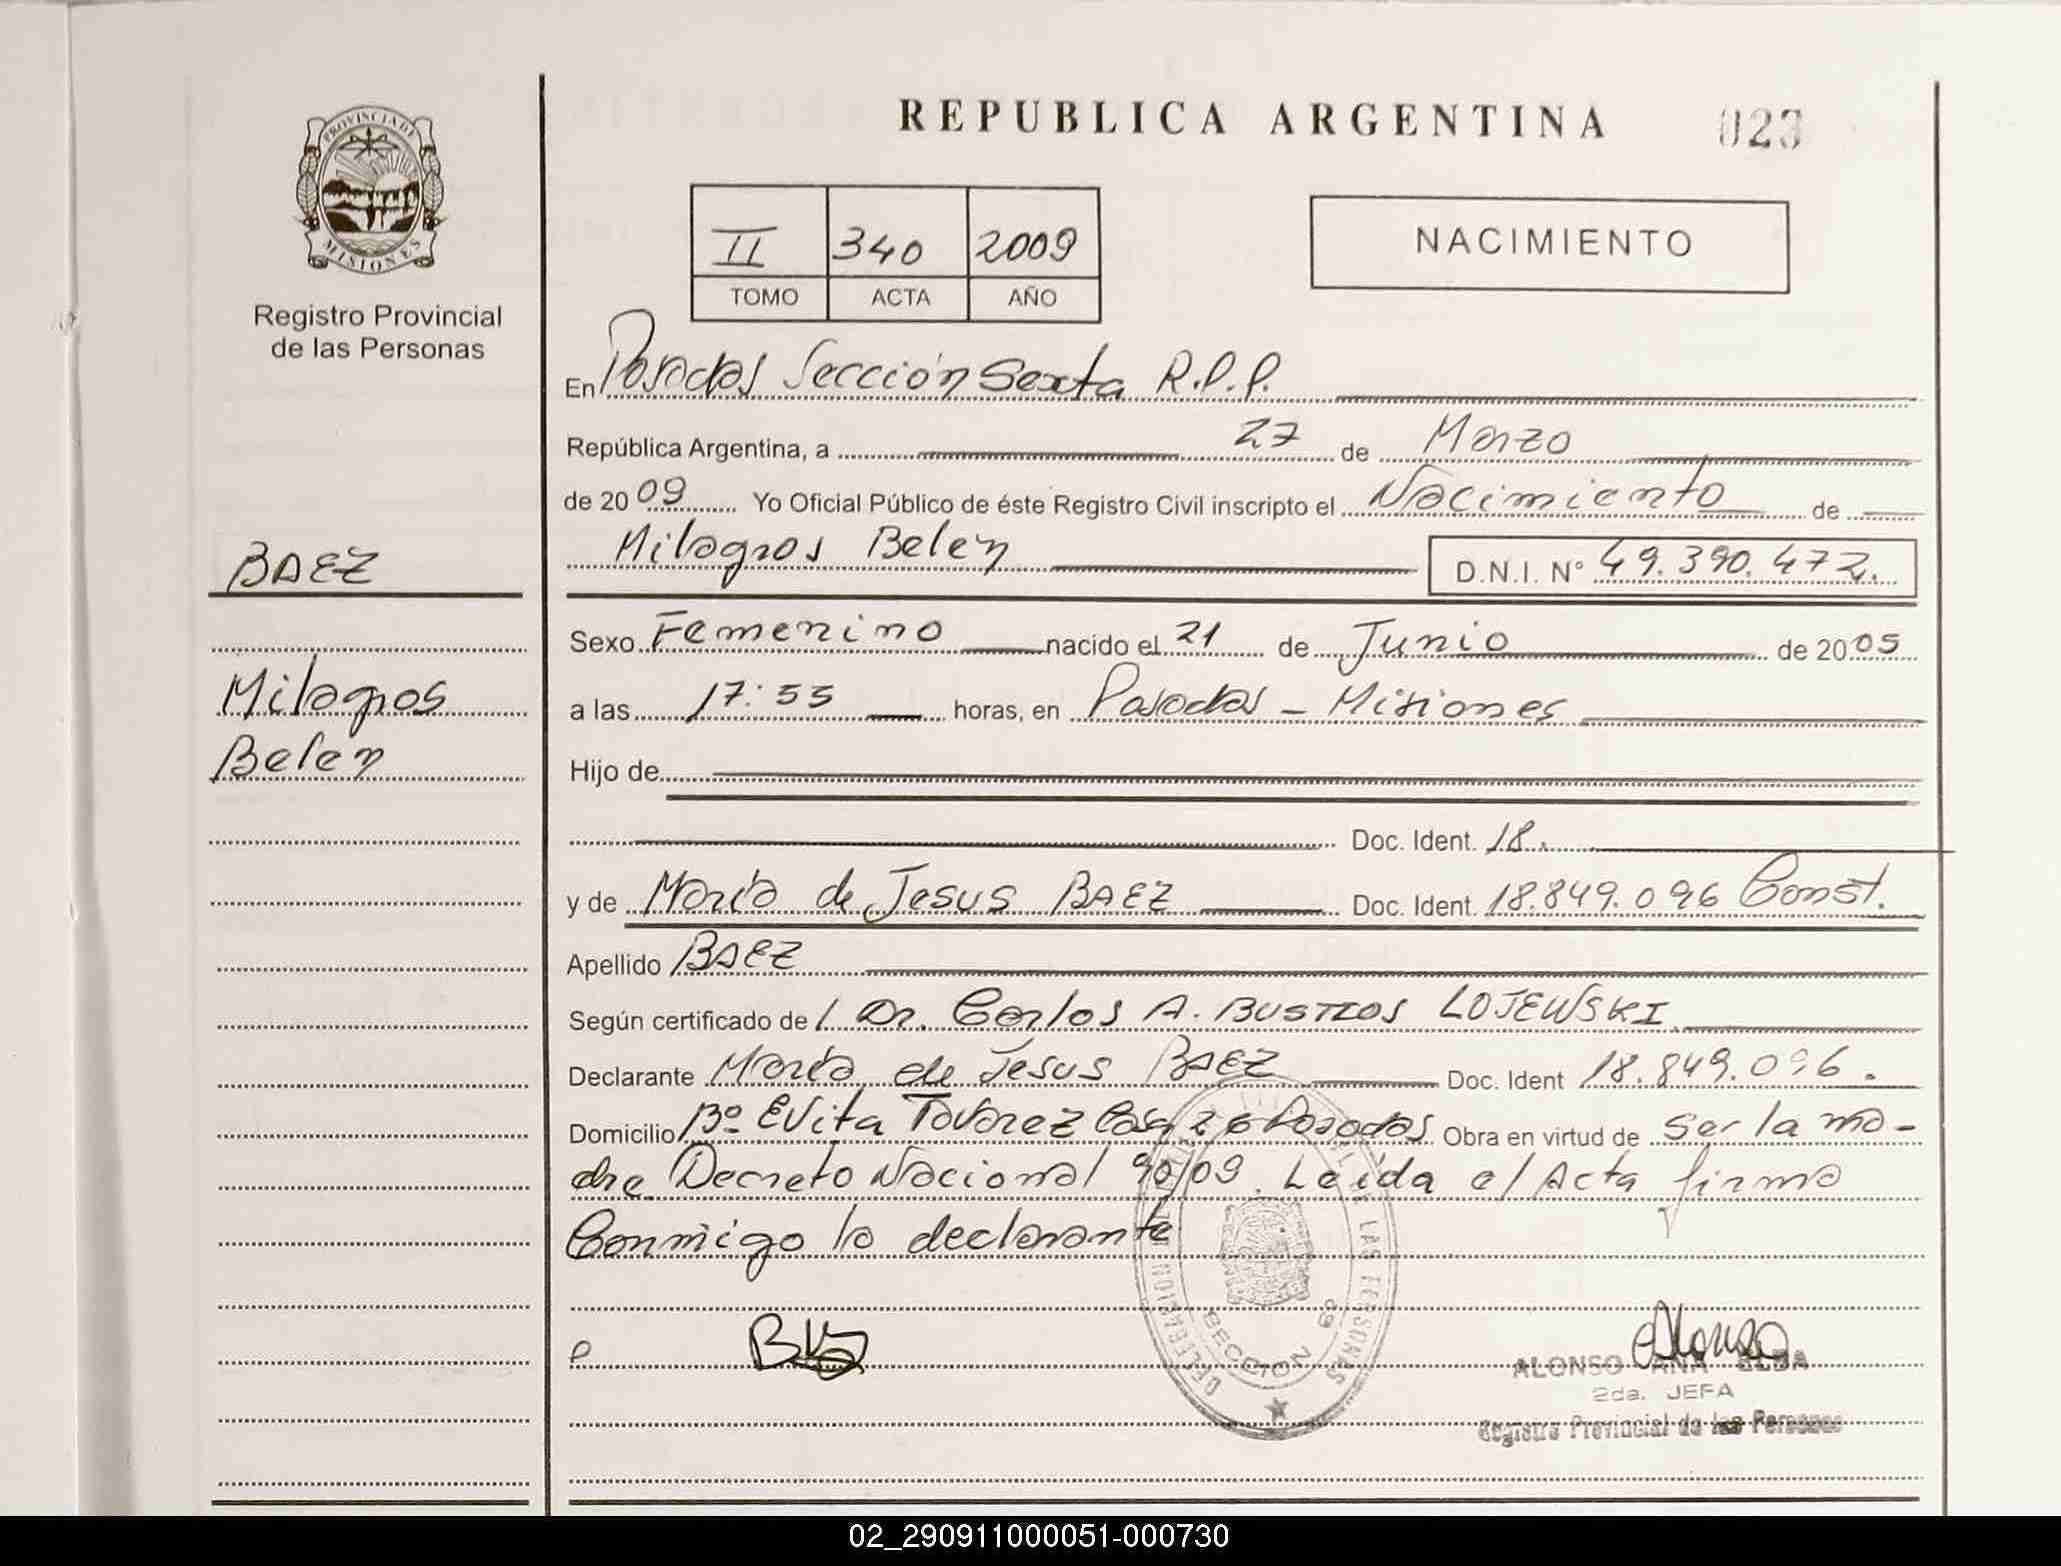 REPUBLICA ARGENTINA
023
PROVINCIA DE
MISIONES
Registro Provincial
de las Personas
II 340 2009
TOMO ACTA AÑO
NACIMIENTO
En Posadas Sección Sexta R.P.P.
República Argentina, a 27 de Marzo
de 2009 Yo Oficial Público de éste Registro Civil inscripto el Nacimiento de
Milagros Belen D.N.I. N° 49.390.472.
BAEZ
Milagros
Belen
Sexo Femenino nacido el 21 de Junio de 2005
a las 17:55 horas, en Posadas - Misiones
Hijo de
Doc. Ident. 18.
y de María de Jesus BAEZ Doc. Ident. 18.849.096 Const.
Apellido BAEZ
Según certificado de l Dr. Carlos A. BUSTIOS LOJEWSKI
Declarante María de Jesus BAEZ Doc. Ident 18.849.096.
Domicilio Bº Evita Tavarez Casa 26 Posadas Obra en virtud de Ser la ma-
dre Decreto Nacional 90/09. Leída el Acta firma
Conmigo la declarante
ALONSO ANA ELBA
2da. JEFA
Registro Provincial de las Personas
DE LAS PERSONAS
SECCION
02_290911000051-000730